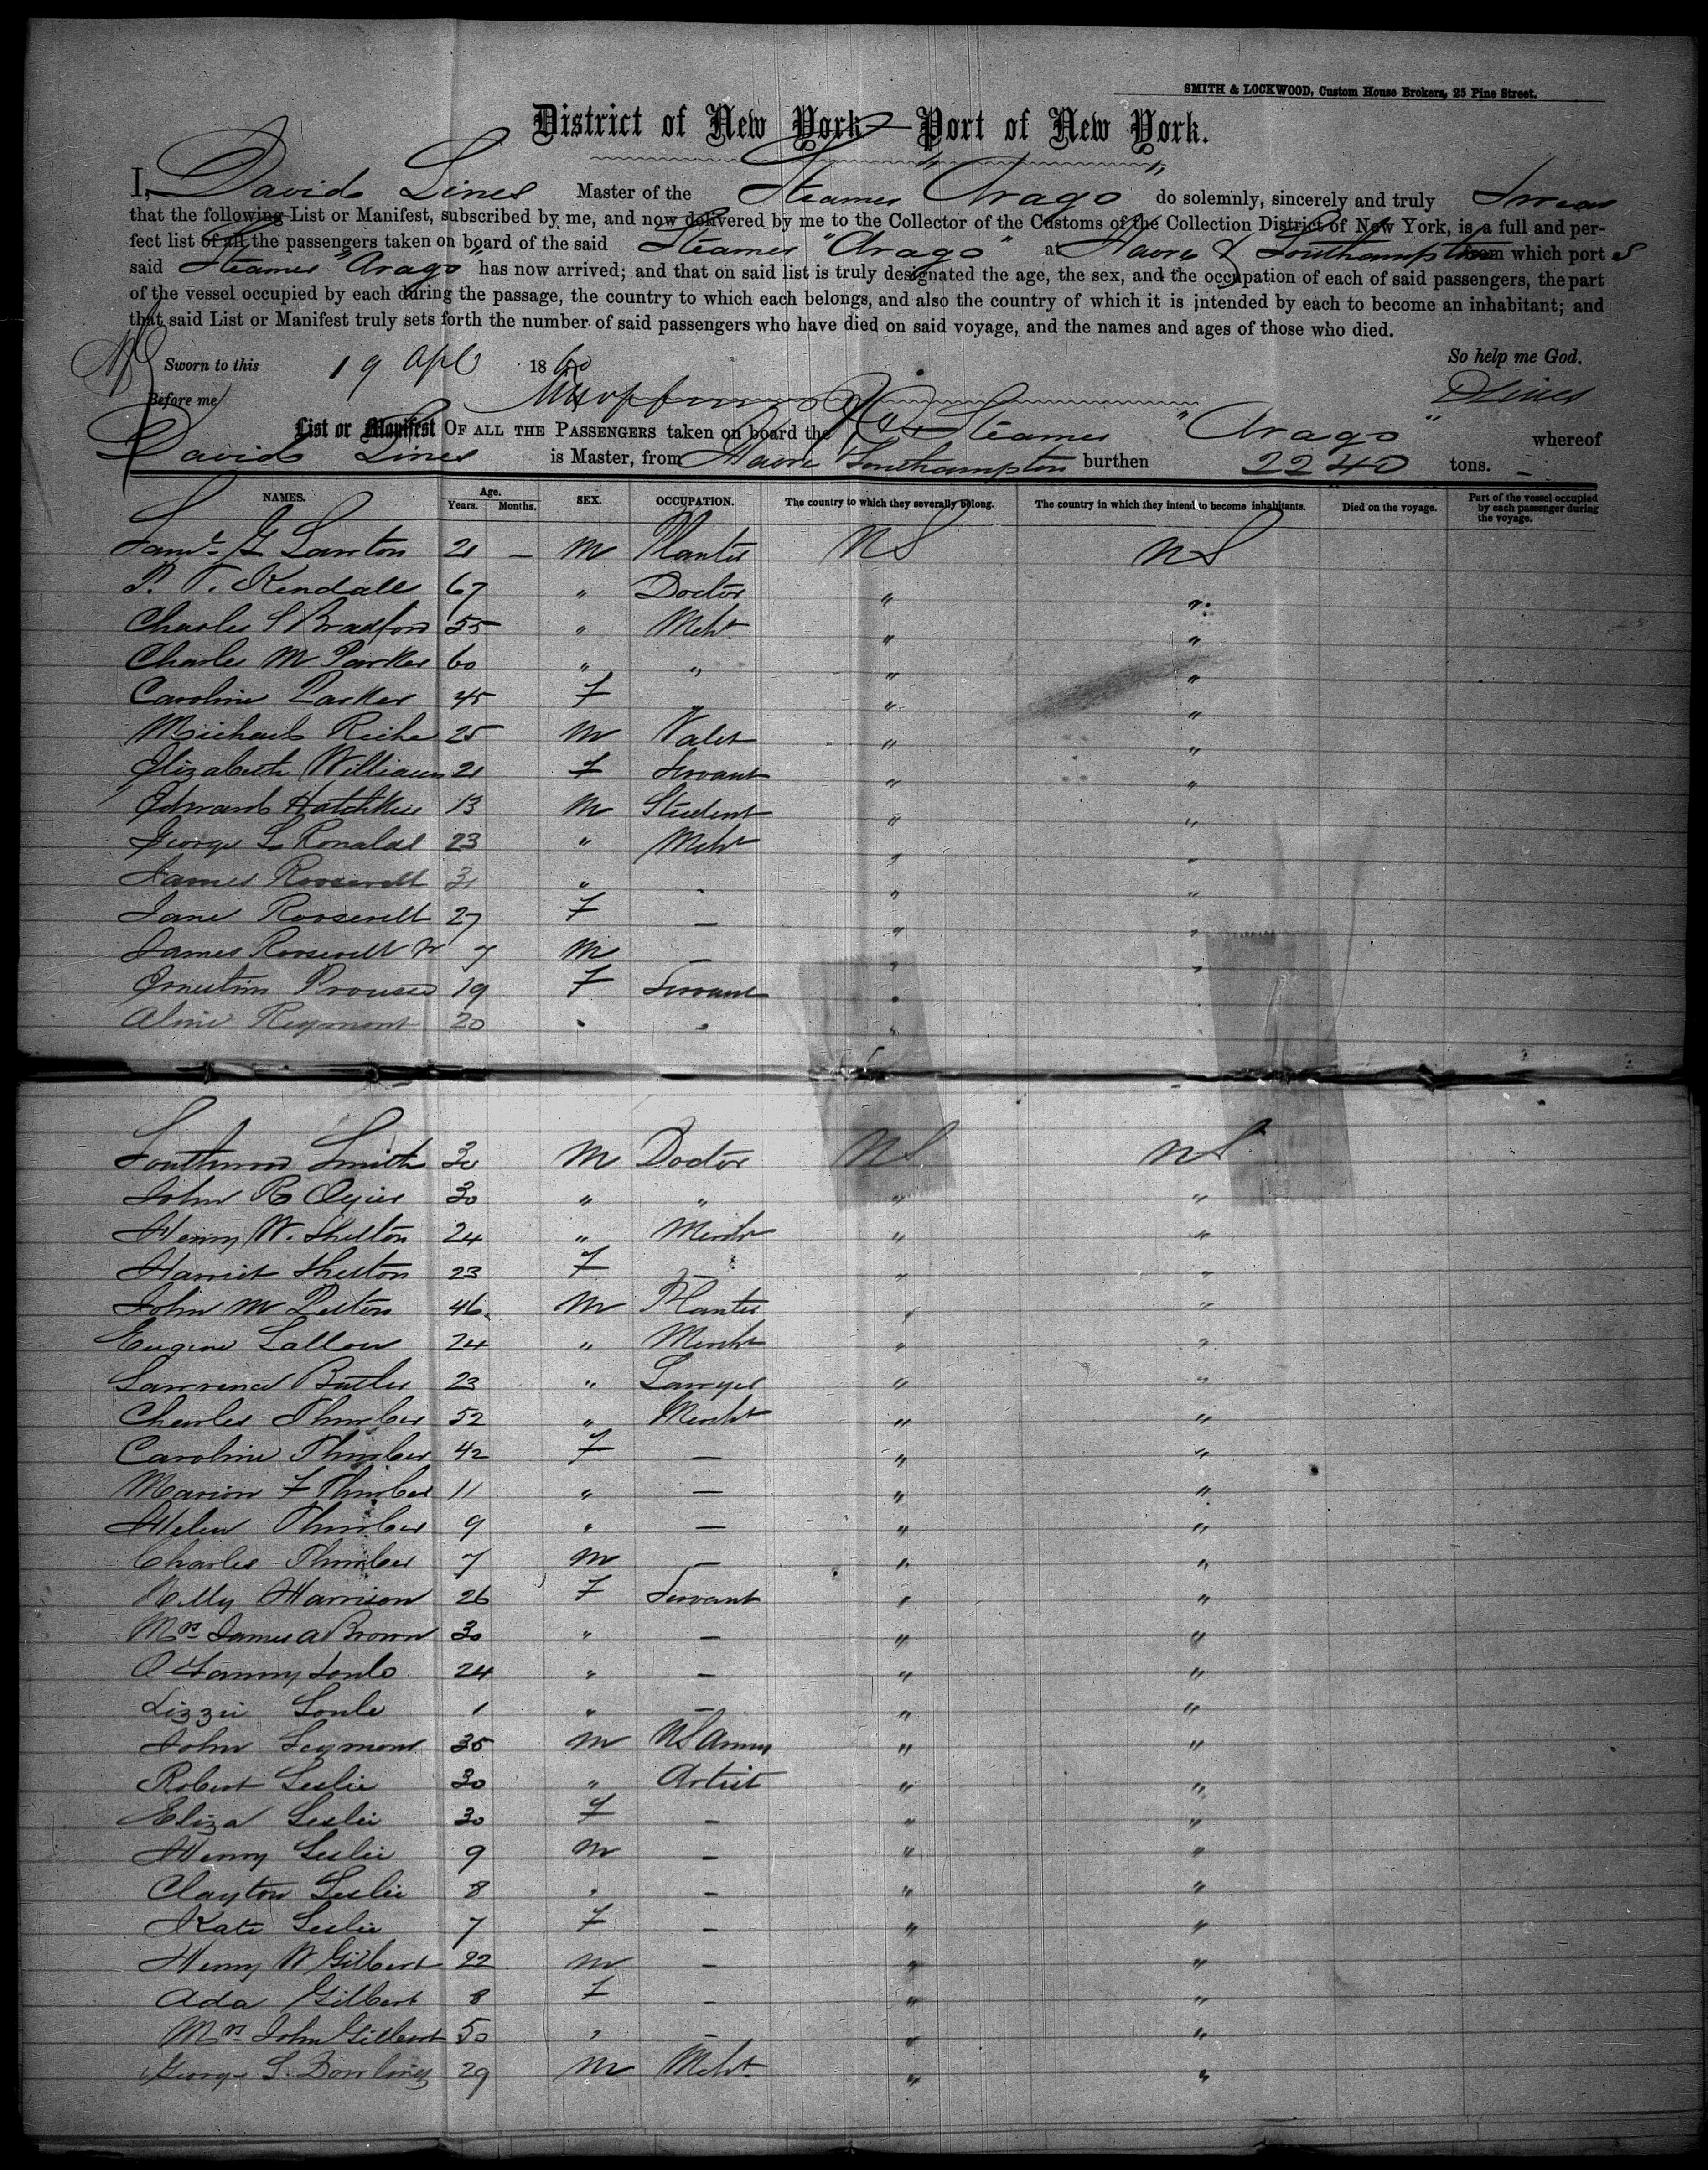 SMITH & LOCKWOOD, Custom House Brokers, 25 Pine Street.
District of New York—Port of New York.
I, David Lines Master of the Steamer "Arago" do solemnly, sincerely and truly Swear
that the following List or Manifest, subscribed by me, and now delivered by me to the Collector of the Customs of the Collection District of New York, is a full and per-
fect list of all the passengers taken on board of the said Steamer "Arago" at Havre & Southampton from which port s
said Steamer "Arago" has now arrived; and that on said list is truly designated the age, the sex, and the occupation of each of said passengers, the part
of the vessel occupied by each during the passage, the country to which each belongs, and also the country of which it is intended by each to become an inhabitant; and
that said List or Manifest truly sets forth the number of said passengers who have died on said voyage, and the names and ages of those who died.
Sworn to this 19 Apl 1860 So help me God.
Before me D Lines
List or Manifest OF ALL THE PASSENGERS taken on board the Steamer "Arago" whereof
David Lines is Master, from Havre Southampton burthen 2240 tons.
NAMES. Age. Years. Months. SEX. OCCUPATION. The country to which they severally belong. The country in which they intend to become inhabitants. Died on the voyage. Part of the vessel occupied by each passenger during the voyage.
Saml G Lawton 21 – M Planter US US
P. T. Kendall 67 " Doctor " "
Charles S Bradford 55 " Mcht " "
Charles M Parker 60 " " " "
Caroline Parker 45 F " " "
Michael Riche 25 M Valet " "
Elizabeth William 21 F Servant " "
Edward Hatchkiss 13 M Student " "
George L Ronalds 23 " Mcht " "
James Roosevelt 31 " - " "
Jane Roosevelt 27 F — " "
James Roosevelt Jr 7 M – " "
Ernestine 19 F Servant " "
Aline Reymont 20 " " "
Southwood Smith 30 M Doctor US US
John R Ogier 30 " " " "
Henry W. Shelton 24 " Mercht " "
Harriet Shelton 23 F – " "
John M 46 M Planter " "
Eugene Lallow 24 " Mercht " "
Lawrence Butler 23 " Lawyer " "
Charles Thurber 52 " Mercht " "
Caroline Thurber 42 F — " "
Marion F Thurber 11 " — " "
Helen Thurber 9 " — " "
Charles Thurber 7 M — " "
Nelly Harrison 26 F Servant " "
Mrs James A Brown 30 " – " "
Fanny Soule 24 " – " "
Lizzie Soule 1 " – " "
John Seymour 35 M US Army " "
Robert Leslie 30 " Artist " "
Eliza Leslie 30 F – " "
Henry Leslie 9 M – " "
Clayton Leslie 8 " – " "
Kate Leslie 7 F – " "
Henry W Gilbert 22 M – " "
Ada Gilbert 8 F – " "
Mrs John Gilbert 50 " – " "
George S. Dowling 29 M Mcht " "